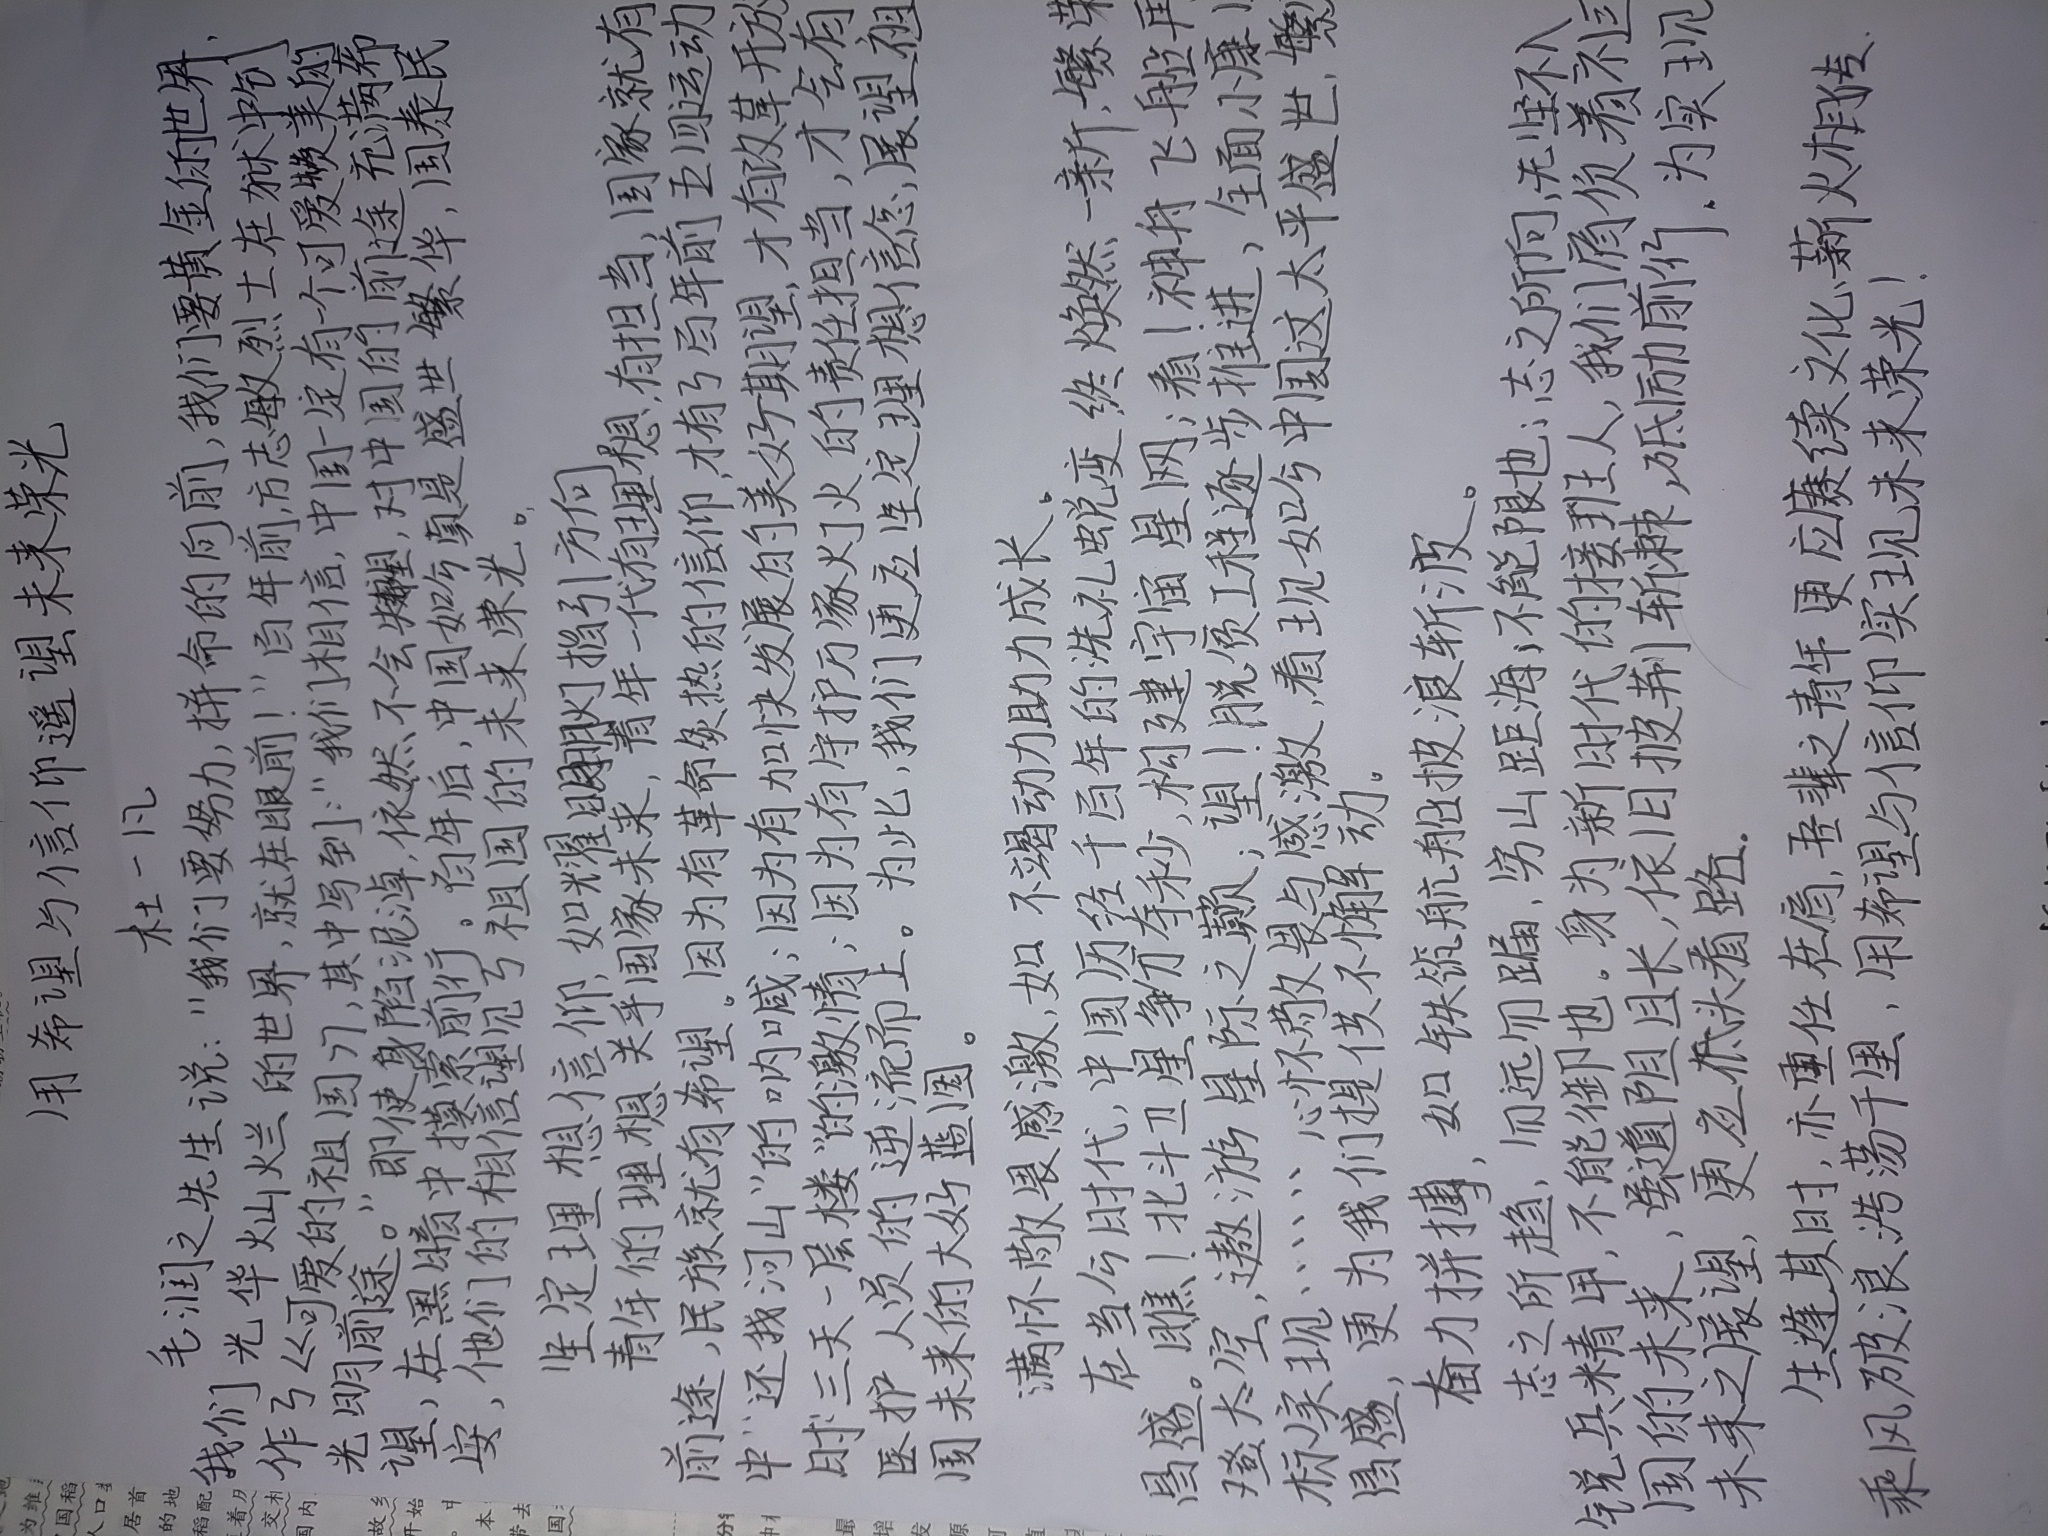 用希望与信仰遥望未来荣光
杜一凡
毛润之先生说:"我们要努力,拼命的向前,我们要黄金的世界,
我们光华灿烂的世界,就在眼前!"百年前,方志敏烈士在狱中
作了《可爱的祖国》,其中写到:"我们相信,中国一定有一个可爱美的
光明前途。"即使身陷泥淖,依然不会失望,对中国的前途充满希
望,在黑暗中摸索前行。百年后,中国如今真是盛世繁华,国泰民
安,他们的相信望见了祖国的未来荣光。
坚定理想信仰,如耀眼明灯指引方向
青年的理想关乎国家未来,青年一代有理想,有担当,国家就有
前途,民族就有希望。因为有革命炙热的信仰,才有了百年前五四运动
中"还我河山"的呐喊;因为有加快发展的美好期望,才有改革开放
时"三天一层楼"的激情;因为有守护万家灯火的责任担当,才会有
医护人员的逆流而上。为此,我们更应坚定理想信念,展望祖
国未来的大好蓝图。
满怀敬畏感激,如不竭动力助力成长。
在当今时代,中国历经千百年的洗礼蜕变,终焕然一新,繁荣
昌盛。瞧!北斗卫星争分夺秒,构建宇宙星网;看!神舟飞船再
登太空,遨游星际之巅;望!脱贫工程逐步推进,全面小康
标实现、、、、、、心怀敬畏与感激,看到如今中国这太平盛世,繁
昌盛,更为我们提供不懈动。
奋力拼搏,如铁铸航船披浪斩波。
志之所趋,而远勿届,穷山距海,不能限也;志之所向,无坚不入
锐兵精甲,不能御也。身为新时代的接班人,我们肩负着祖
国的未来,道阻且长,依旧披荆斩棘,砥励前行,为实现
未来之展望,更应低头看路。
生逢其时,亦重任在肩,吾辈之青年更应赓续文化,薪火相传.
乘风破浪,浩荡千里,用希望与信仰实现未来荣光!